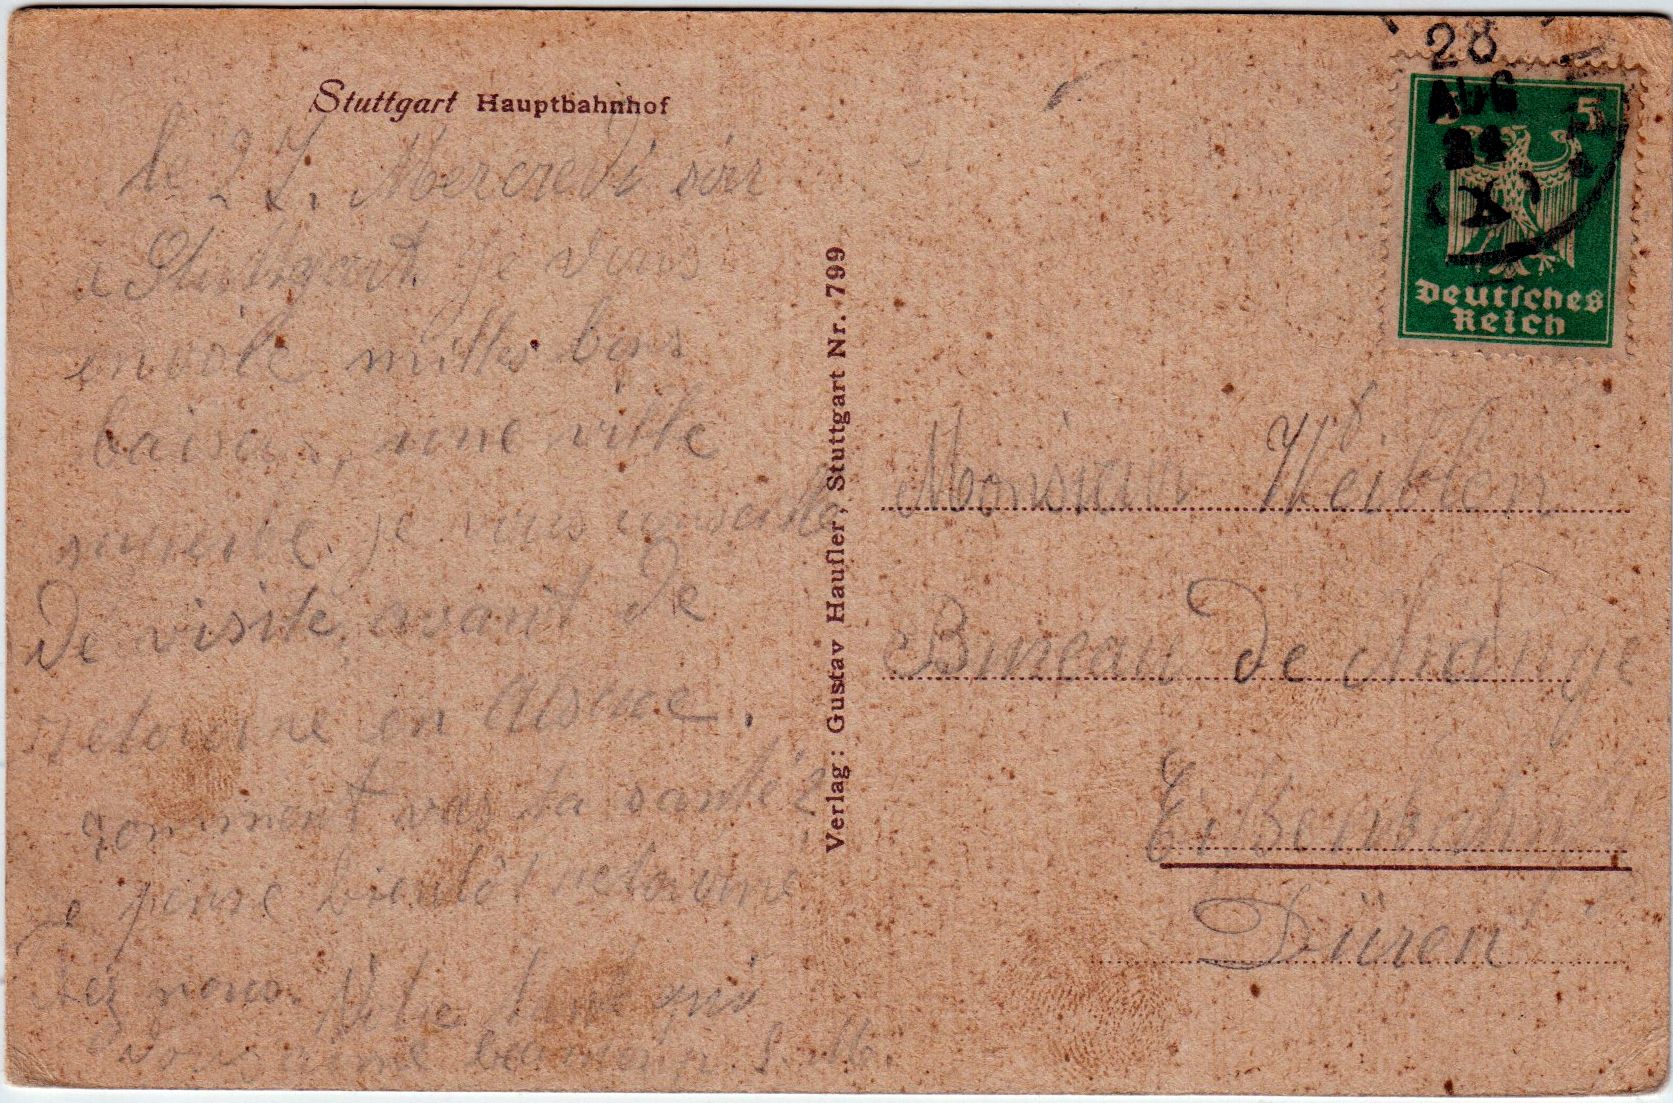 Stuttgart Hauptbahnhof
le 27. Mercredi soir
à Stuttgart. Je vous
envole milles bons
baisers, une ville
je vous conseille
de visite, avant de
retourne en
comment vas ta santé?
Je pense bientôt retourne
chez nous. Votre tante qui
vous aime beaucoup. S. M.
Verlag: Gustav Haufler, Stuttgart Nr. 799
28
AUG
24
(X)
5
Deutsches
Reich
Monsieur Weiblen
Bureau de change
Düren